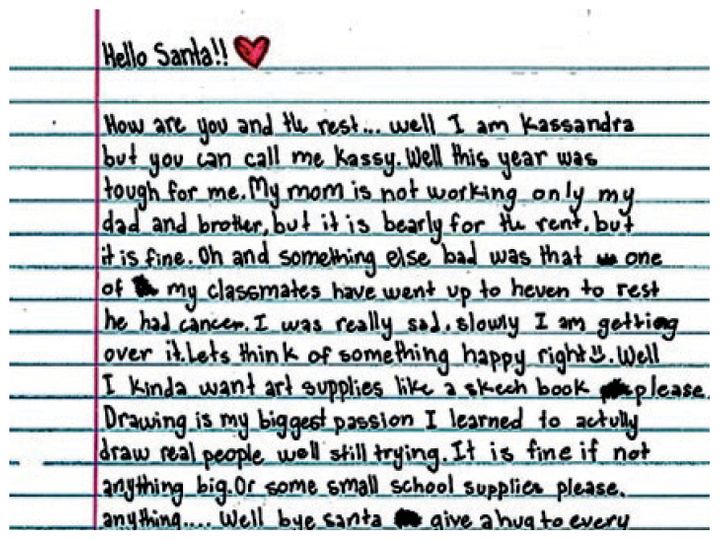 Hello Santa!!
How are you and the rest... well I am Kassandra
but you can call me Kassy. Well this year was
tough for me. My mom is not working only my
dad and brother, but it is bearly for the rent. but
it is fine. Oh and something else bad was that one
of my classmates have went up to heven to rest
he had cancer. I was really sad. slowly I am getting
over it. Lets think of something happy right. Well
I kinda want art supplies like a skech book please.
Drawing is my biggest passion I learned to actully
draw real people well still trying. It is fine if not
anything big. Or some small school supplies please.
anything.... Well bye santa give a hug to every